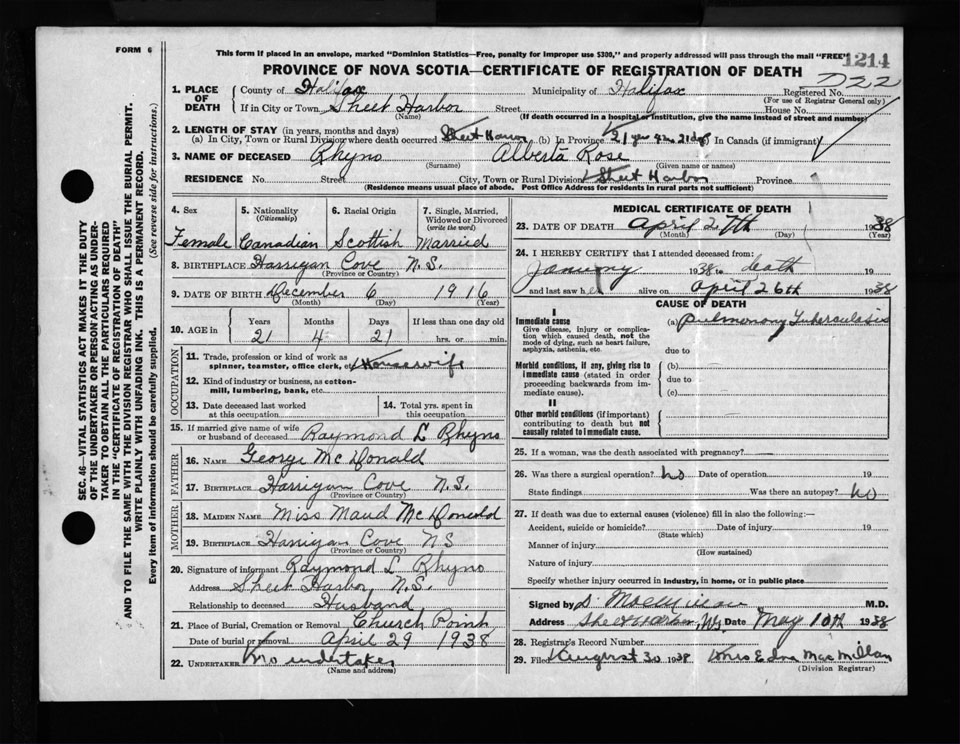 FORM 6
This form if placed in an envelope, marked "Dominion Statistics—Free, penalty for improper use $300," and properly addressed will pass through the mail "FREE"
1214
PROVINCE OF NOVA SCOTIA—CERTIFICATE OF REGISTRATION OF DEATH
D22
1. PLACE OF DEATH County of Halifax Municipality of Halifax Registered No.
(For use of Registrar General only)
If in City or Town Sheet Harbor Street House No.
(Name) (If death occurred in a hospital or institution, give the name instead of street and number)
2. LENGTH OF STAY (in years, months and days)
(a) In City, Town or Rural Division where death occurred Sheet Harbor (b) In Province 21 yrs 4m 21 dys (c) In Canada (if immigrant)
3. NAME OF DECEASED Rhyno Alberta Rose
(Surname) (Given name or names)
RESIDENCE No. Street City, Town or Rural Division Sheet Harbor Province
(Residence means usual place of abode. Post Office Address for residents in rural parts not sufficient)
4. Sex 5. Nationality (Citizenship) 6. Racial Origin 7. Single, Married, Widowed or Divorced (write the word)
Female Canadian Scottish Married
8. BIRTHPLACE Harrigan Cove N.S.
(Province or Country)
9. DATE OF BIRTH December 6 1916
(Month) (Day) (Year)
10. AGE in Years Months Days If less than one day old
21 4 21 hrs. or min.
OCCUPATION
11. Trade, profession or kind of work as spinner, teamster, office clerk, etc. Housewife
12. Kind of industry or business, as cotton-mill, lumbering, bank, etc.
13. Date deceased last worked at this occupation
14. Total yrs. spent in this occupation
15. If married give name of wife or husband of deceased Raymond L Rhyno
FATHER
16. NAME George McDonald
17. BIRTHPLACE Harrigan Cove N.S.
(Province or Country)
MOTHER
18. MAIDEN NAME Miss Maud McDonald
19. BIRTHPLACE Harrigan Cove NS
(Province or Country)
20. Signature of informant Raymond L Rhyno
Address Sheet Harbor N.S.
Relationship to deceased Husband
21. Place of Burial, Cremation or Removal Church Point
Date of burial or removal April 29 1938
22. UNDERTAKER No undertaker
(Name and address)
MEDICAL CERTIFICATE OF DEATH
23. DATE OF DEATH April 27th 1938
(Month) (Day) (Year)
24. I HEREBY CERTIFY that I attended deceased from:
January 1938 to death 19
and last saw her alive on April 26th 1938
CAUSE OF DEATH
I
Immediate cause (a) Pulmonary Tuberculosis
Give disease, injury or complication which caused death, not the mode of dying, such as heart failure, asphyxia, asthenia, etc.
due to
Morbid conditions, if any, giving rise to immediate cause (stated in order proceeding backwards from immediate).
(b)
due to
(c)
II
Other morbid conditions (if important) contributing to death but not causally related to immediate cause.
25. If a woman, was the death associated with pregnancy?
26. Was there a surgical operation? no Date of operation 19
State findings Was there an autopsy? no
27. If death was due to external causes (violence) fill in also the following:—
Accident, suicide or homicide? Date of injury 19
(State which)
Manner of injury
(How sustained)
Nature of injury
Specify whether injury occurred in industry, in home, or in public place
Signed by D. MacMillan M.D.
Address Sheet Harbor, NS. Date May 10th 1938
28. Registrar's Record Number
29. Filed August 30 1938 Mrs Edna MacMillan
(Division Registrar)
SEC. 46—VITAL STATISTICS ACT MAKES IT THE DUTY
OF THE UNDERTAKER OR PERSON ACTING AS UNDER-
TAKER TO OBTAIN ALL THE PARTICULARS REQUIRED
IN THE "CERTIFICATE OF REGISTRATION OF DEATH"
AND TO FILE THE SAME WITH THE DIVISION REGISTRAR WHO SHALL ISSUE THE BURIAL PERMIT.
WRITE PLAINLY WITH UNFADING INK. THIS IS A PERMANENT RECORD.
Every item of information should be carefully supplied. (See reverse side for instructions.)